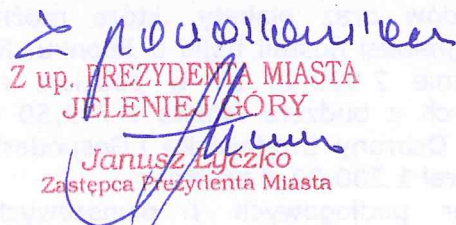 Z poważaniem
Z up. PREZYDENTA MIASTA
JELENIEJ GÓRY
Janusz Łyczko
Zastępca Prezydenta Miasta